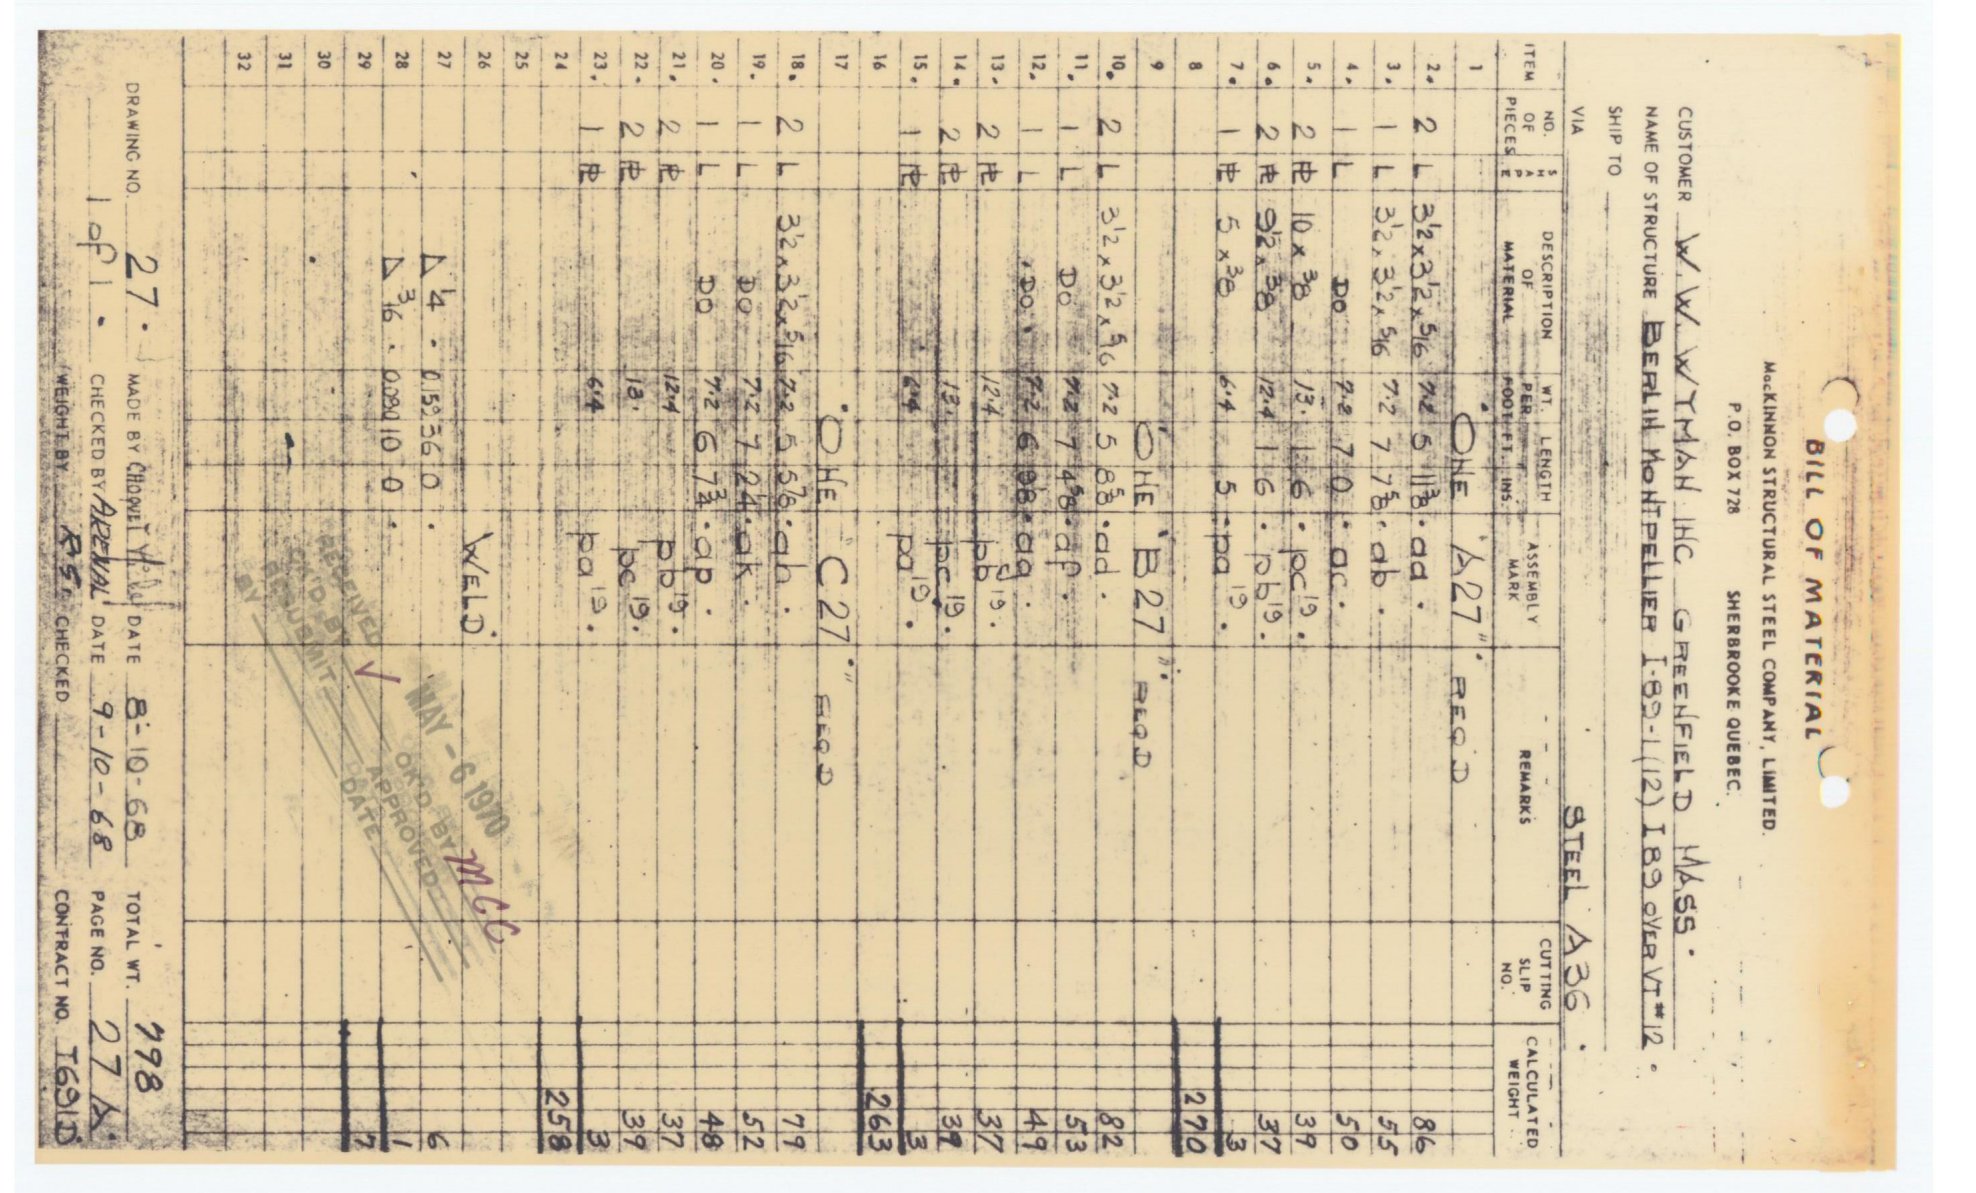 BILL OF MATERIAL
MacKINNON STRUCTURAL STEEL COMPANY, LIMITED.
P.O. BOX 728 SHERBROOKE QUEBEC.
CUSTOMER W. W. WYMAN INC GREENFIELD MASS.
NAME OF STRUCTURE BERLIN MONTPELLIER I-89-1(12) I89 OVER VT #12.
SHIP TO
VIA STEEL A36.
ITEM NO. OF PIECES SHAPE DESCRIPTION OF MATERIAL WT. PER FOOT LENGTH FT. INS. ASSEMBLY MARK REMARKS CUTTING SLIP NO. CALCULATED WEIGHT
1 "ONE "A27". REQD
2. 2 L 3½ x 3½ x 5/16 7.2 5 11 3/8 . aa . 86
3. 1 L 3½ x 3½ x 5/16 7.2 7 7 5/8 . ab . 55
4. 1 L DO 7.2 7 0 . ac . 50
5. 2 PL 10 x 3/8 13. 1 6 . pc19 . 39
6. 2 PL 9½ x 3/8 12.4 1 6 . pb19 . 37
7. 1 PL 5 x 3/8 6.4 5 . pa19 . 3
8 270
9 "ONE "B27". REQD
10. 2 L 3½ x 3½ x 5/16 7.2 5 8 5/8 . ad . 82
11. 1 L DO 7.2 7 4 5/8 . af . 53
12. 1 L DO . 7.2 6 9 1/8 . ag . 49
13. 2 PL 12.4 pb19 . 37
14. 2 PL 13. pc19 . 39
15. 1 PL 6.4 pa19 . 3
16 263
17 "ONE "C27". REQD
18. 2 L 3½ x 3½ x 5/16 7.2 5 5 7/8 . ah . 79
19. 1 L DO 7.2 7 2 1/4 . ak . 52
20. 1 L DO 7.2 6 7 3/4 . ap . 48
21. 2 PL 12.4 pb19 . 37
22. 2 PL 13. pc19 . 39
23. 1 PL 6.4 pa19 . 3
24 258
25
26 WELD.
27 1/4 . 0.159 36 0 . 6
28 3/16 . 0.090 10 0 . 1
29 7
30
31
32
RECEIVED MAY - 6 1970
OK'D BY OK'D BY MGC
RESUBMIT APPROVED
BY DATE
DRAWING NO. 27. MADE BY DATE 8-10-68 TOTAL WT. 798
1 of 1. CHECKED BY ARENAL DATE 9-10-68 PAGE NO. 27 A.
WEIGHT BY R.S. CHECKED CONTRACT NO. T691D